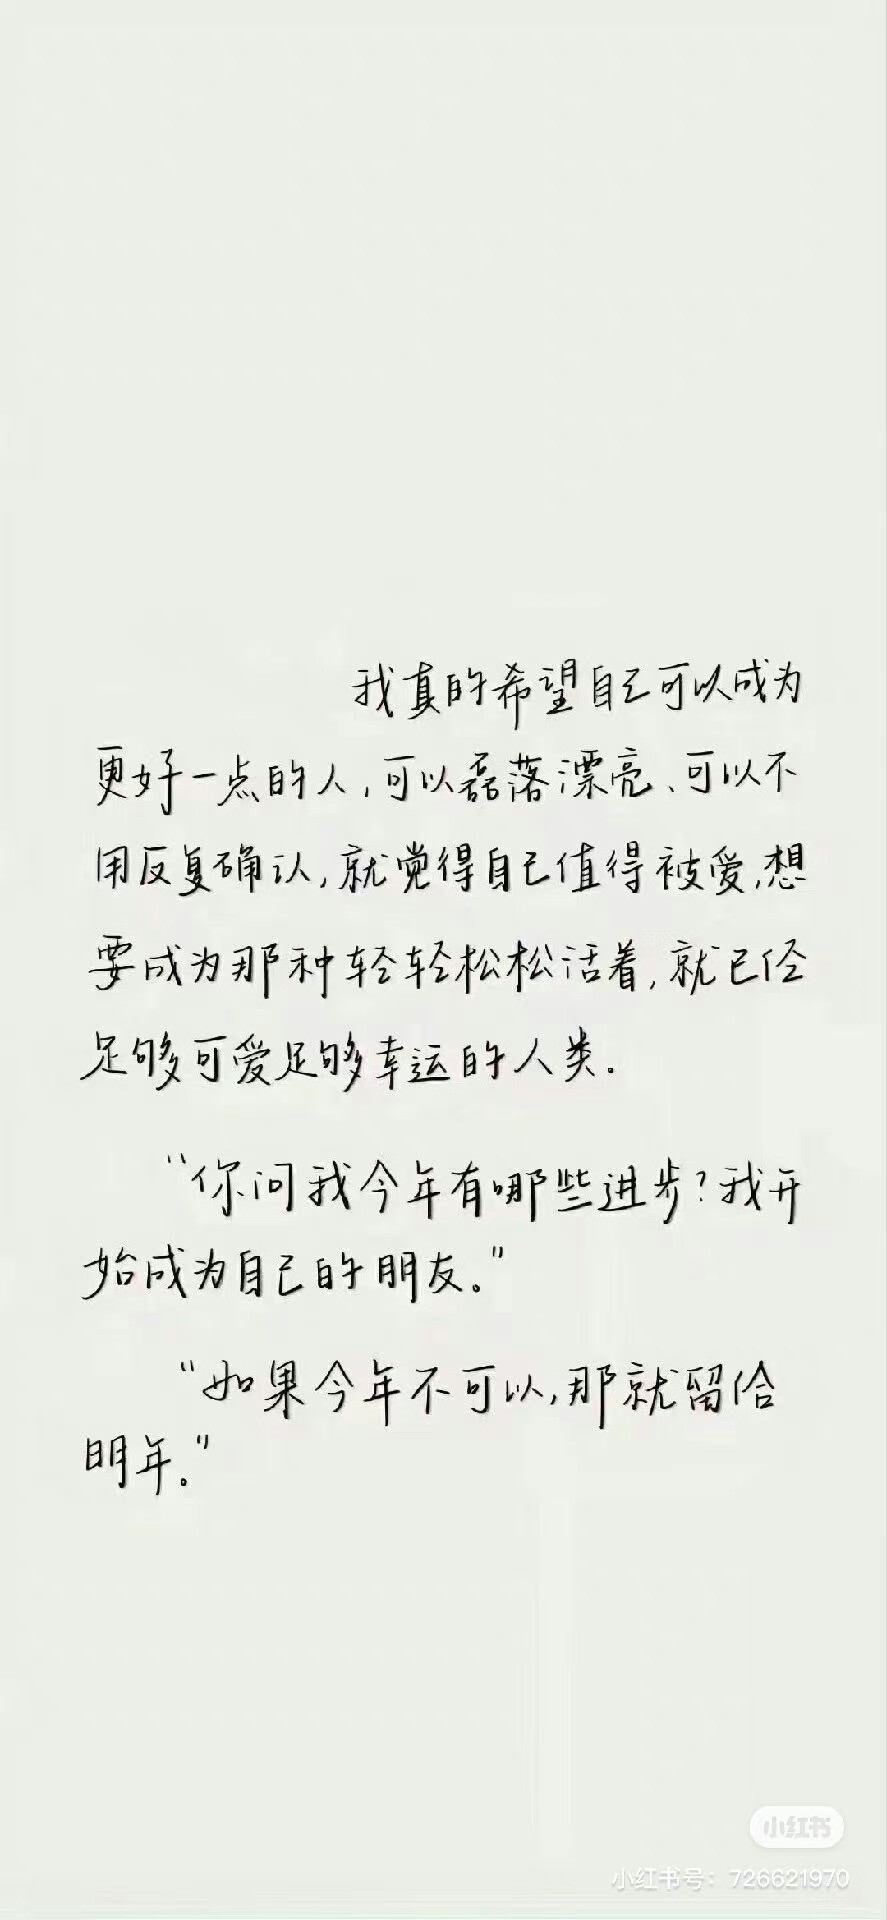 我真的希望自己可以成为
更好一点的人,可以磊落漂亮、可以不
用反复确认,就觉得自己值得被爱,想
要成为那种轻轻松松活着,就已经
足够可爱足够幸运的人类.
“你问我今年有哪些进步?我开
始成为自己的朋友。”
“如果今年不可以,那就留给
明年。”
小红书
小红书号：726621970